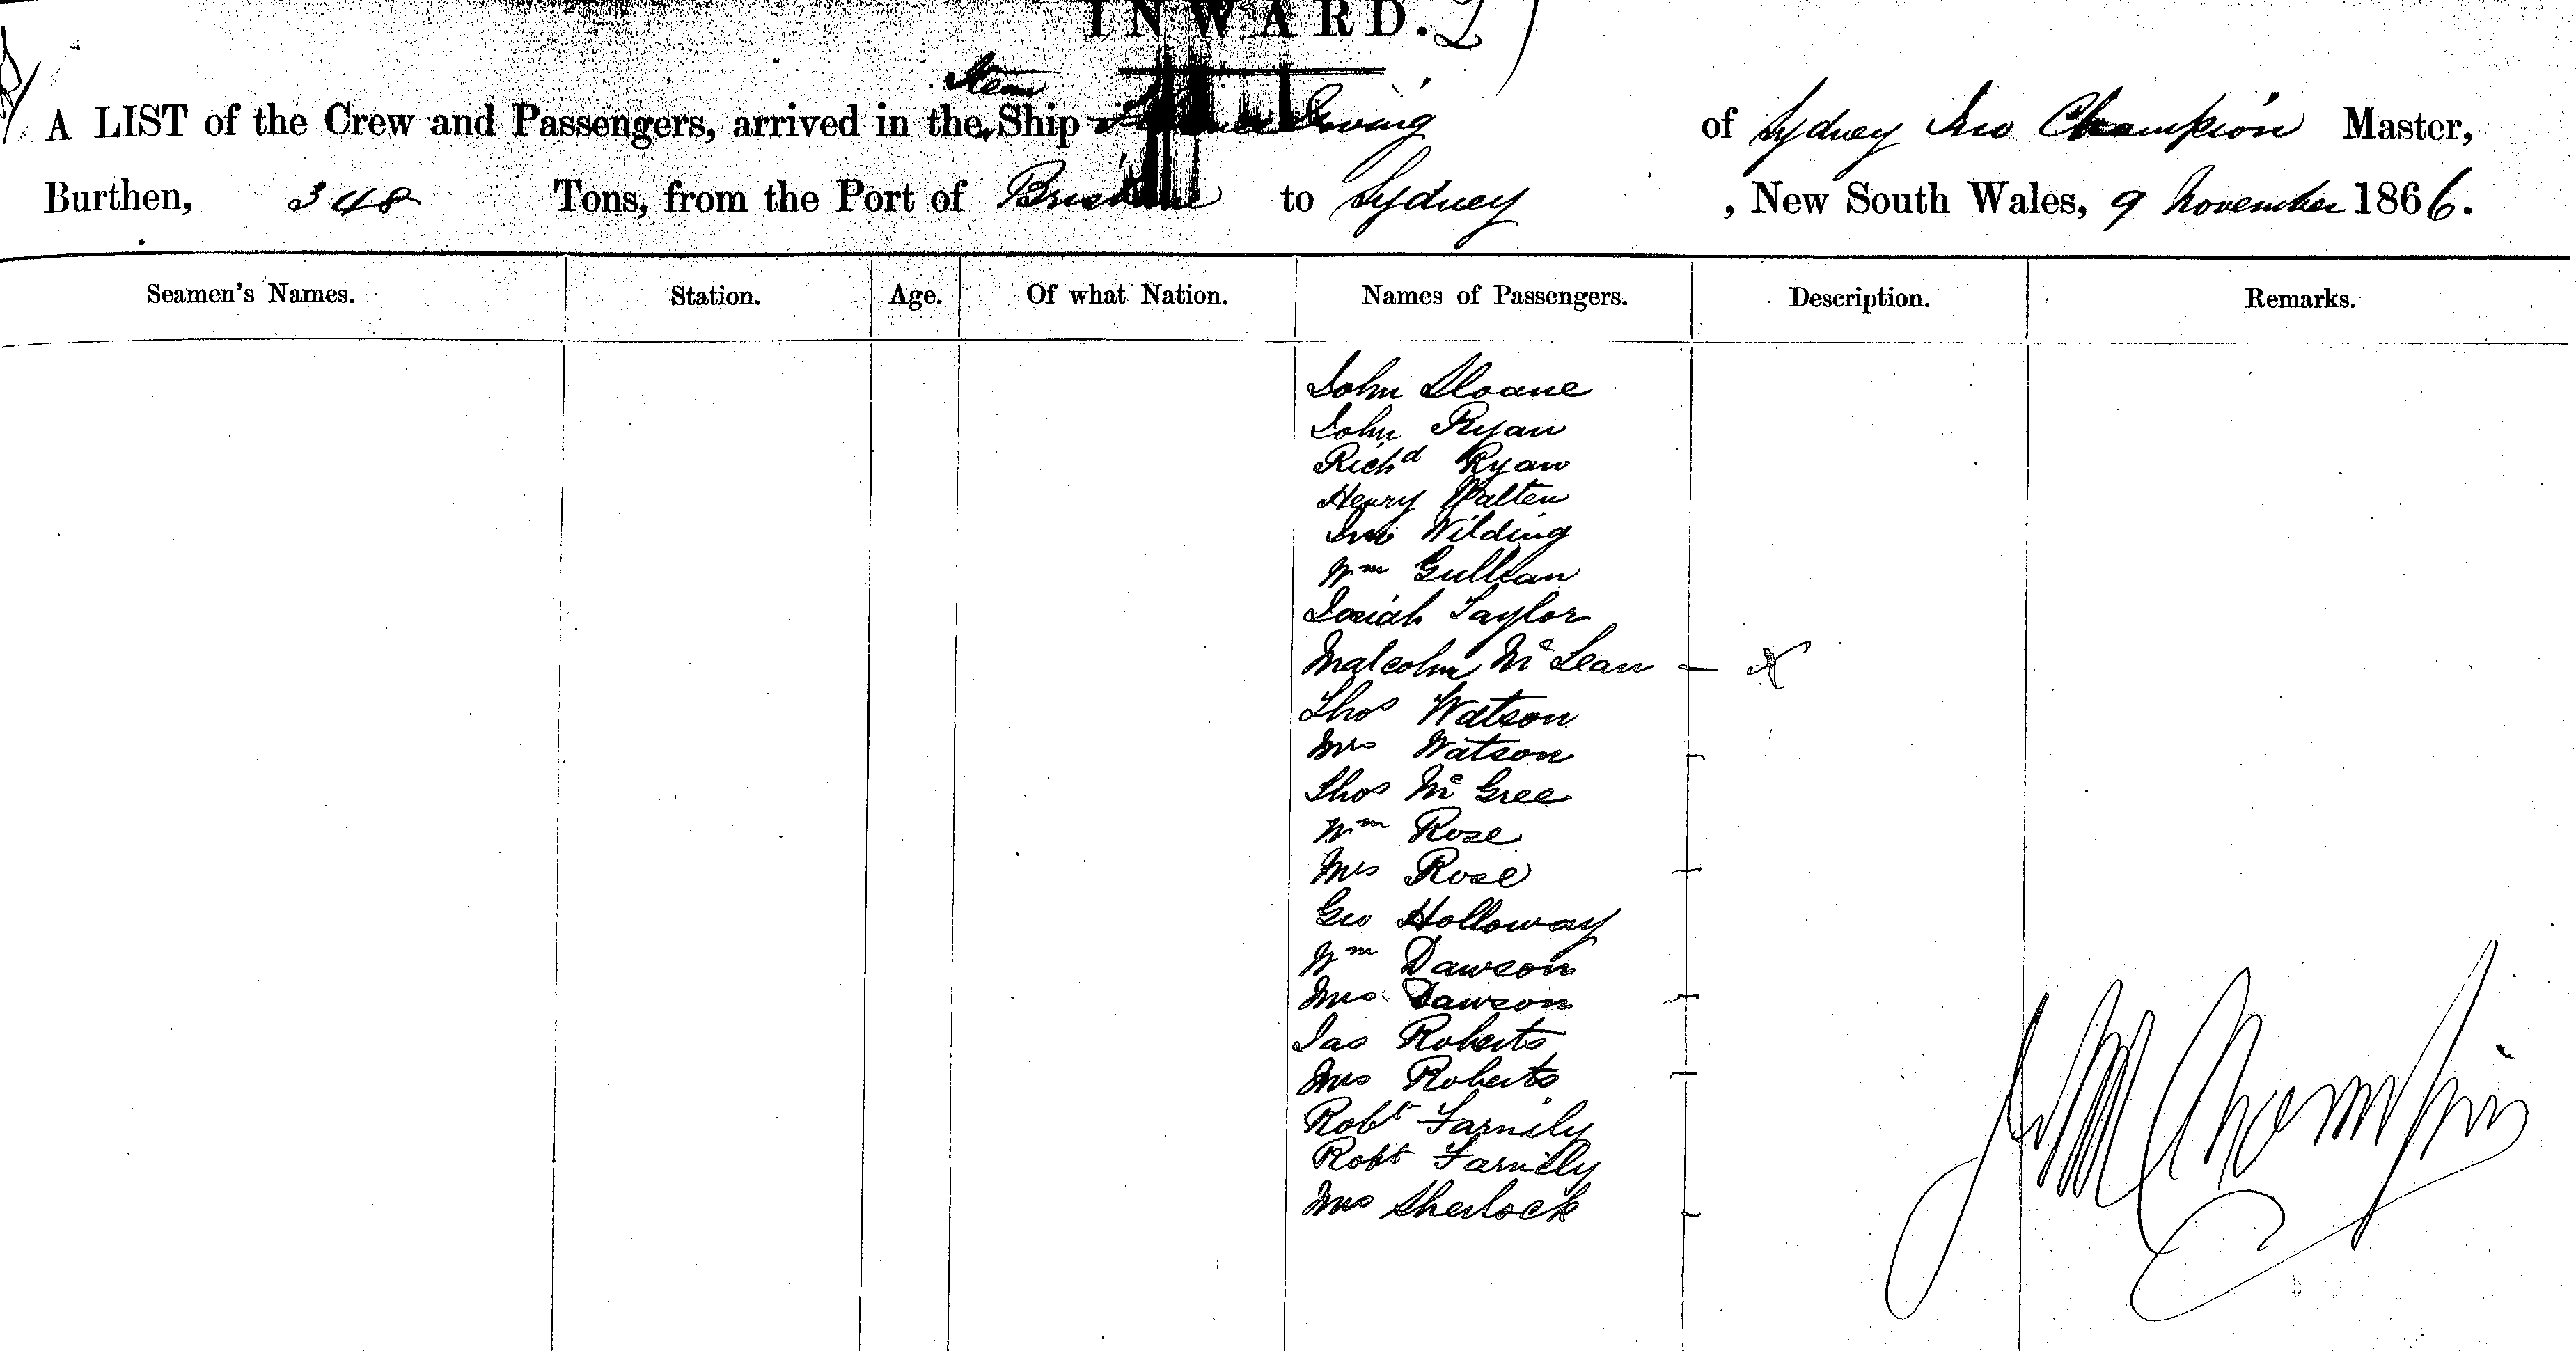 INWARD. 2
Steam
A LIST of the Crew and Passengers, arrived in the Ship Irving of Sydney Jno Champion Master,
Burthen, 348 Tons, from the Port of Brisbane to Sydney , New South Wales, 9 November 1866.
Seamen's Names. Station. Age. Of what Nation. Names of Passengers. Description. Remarks.
John Sloane
John Ryan
Richd Ryan
Henry Walten
Jno Wilding
Wm Gullean
Josiah Taylor
Malcolm McLean — X
Thos Watson
Mrs Watson
Thos McGree
Wm Rose
Mrs Rose
Geo Holloway
Wm Dawson
Mrs Dawson
Jas Roberts
Mrs Roberts
Robt Farnily
Robt Farnily
Mrs Sherlock
Champion